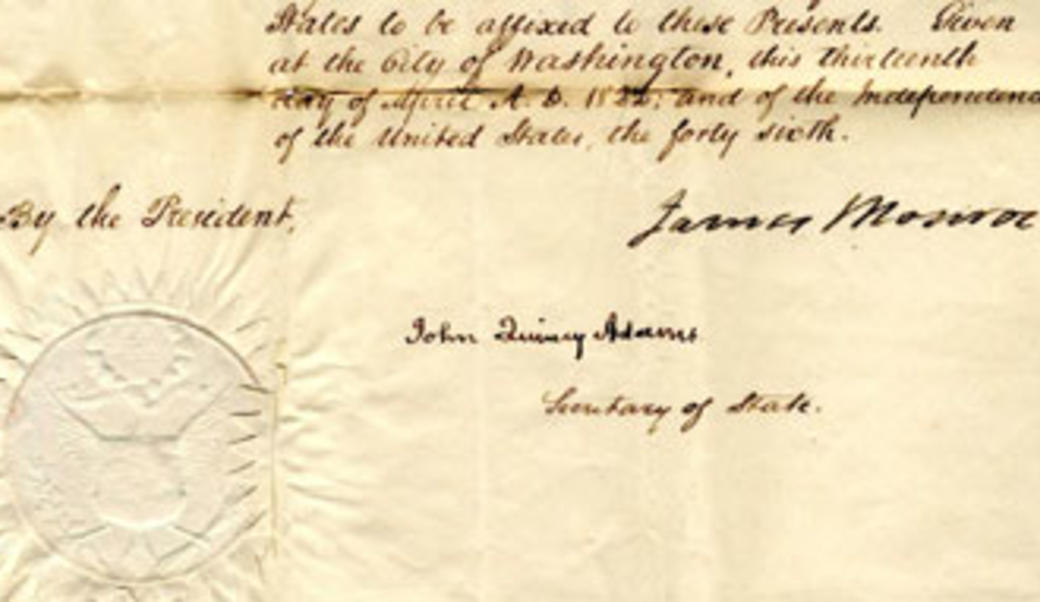 States to be affixed to these Presents. Given
at the City of Washington, this thirteenth
day of April A. D. 1822; and of the Independenc
of the United States, the forty sixth.
By the President,
James Monroe
John Quincy Adams
Secretary of State.